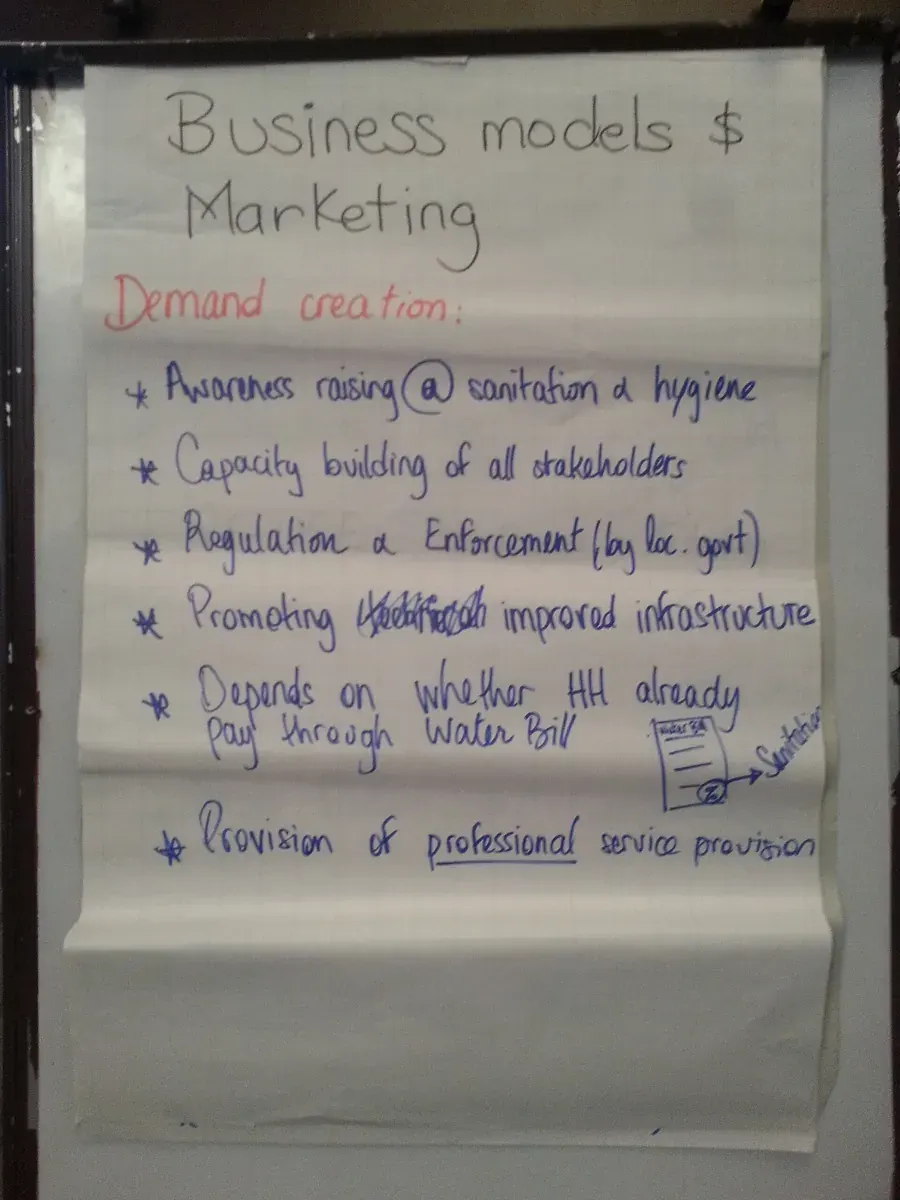 Business models $
Marketing
Demand creation:
* Awareness raising @ sanitation & hygiene
* Capacity building of all stakeholders
* Regulation & Enforcement (by loc. govt)
* Promoting improved infrastructure
* Depends on whether HH already
pay through Water Bill
Water Bill
%
Sanitation
* Provision of professional service provision